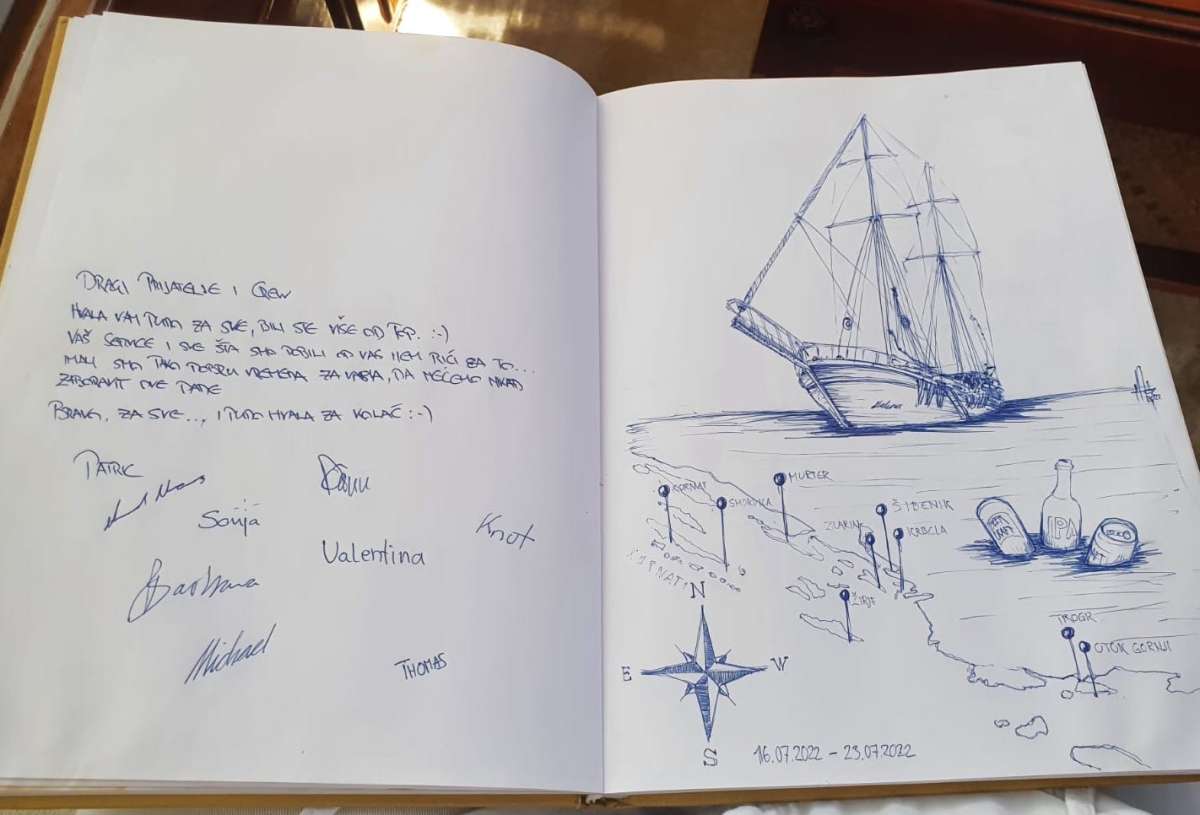 DRAGI PRIJATELJE I CREW
HVALA VAM PUNO ZA SVE, BILI STE VIŠE OD TOP. :-)
VAŠ SERVICE I SVE ŠTA SMO DOBILI OD VAS NEM RIČI ZA TO...
IMALI SMO TAKO DOBRU VREMENA ZA VAMA, DA NEĆEMO NIKAD
ZABORAVIT OVE DANE
BRAVO, ZA SVE..., I PUNO HVALA ZA KOLAČ :-)
PATRIC
Sonja
Knot
Valentina
Barbara
Michael
THOMAS
KORNAT
SMOKVICA
MURTER
ZLARIN
ŠIBENIK
KRBELA
ŽIRJE
KORNATI
IPA
TROGIR
OTOK GORNJI
N
E
W
S
16.07.2022 - 23.07.2022